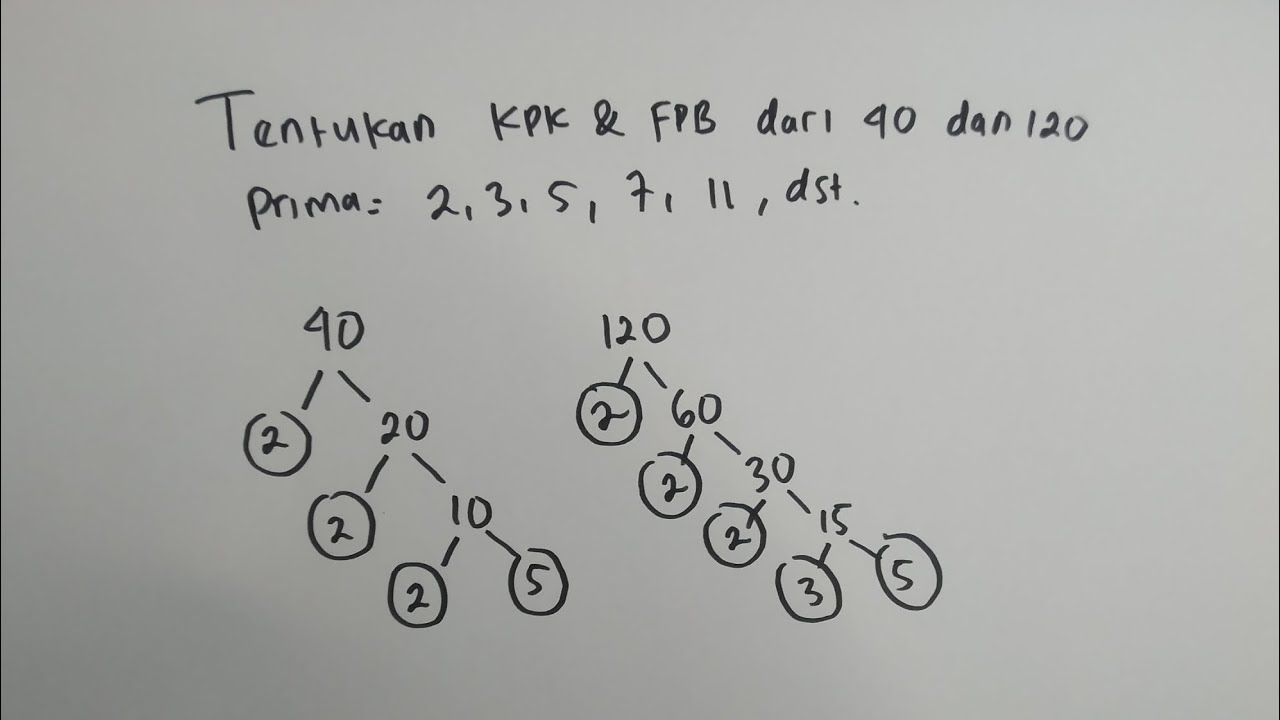 Tentukan KPK & FPB dari 40 dan 120
Prima = 2, 3, 5, 7, 11, dst.
40
2 20
2 10
2 5
120
2 60
2 30
2 15
3 5